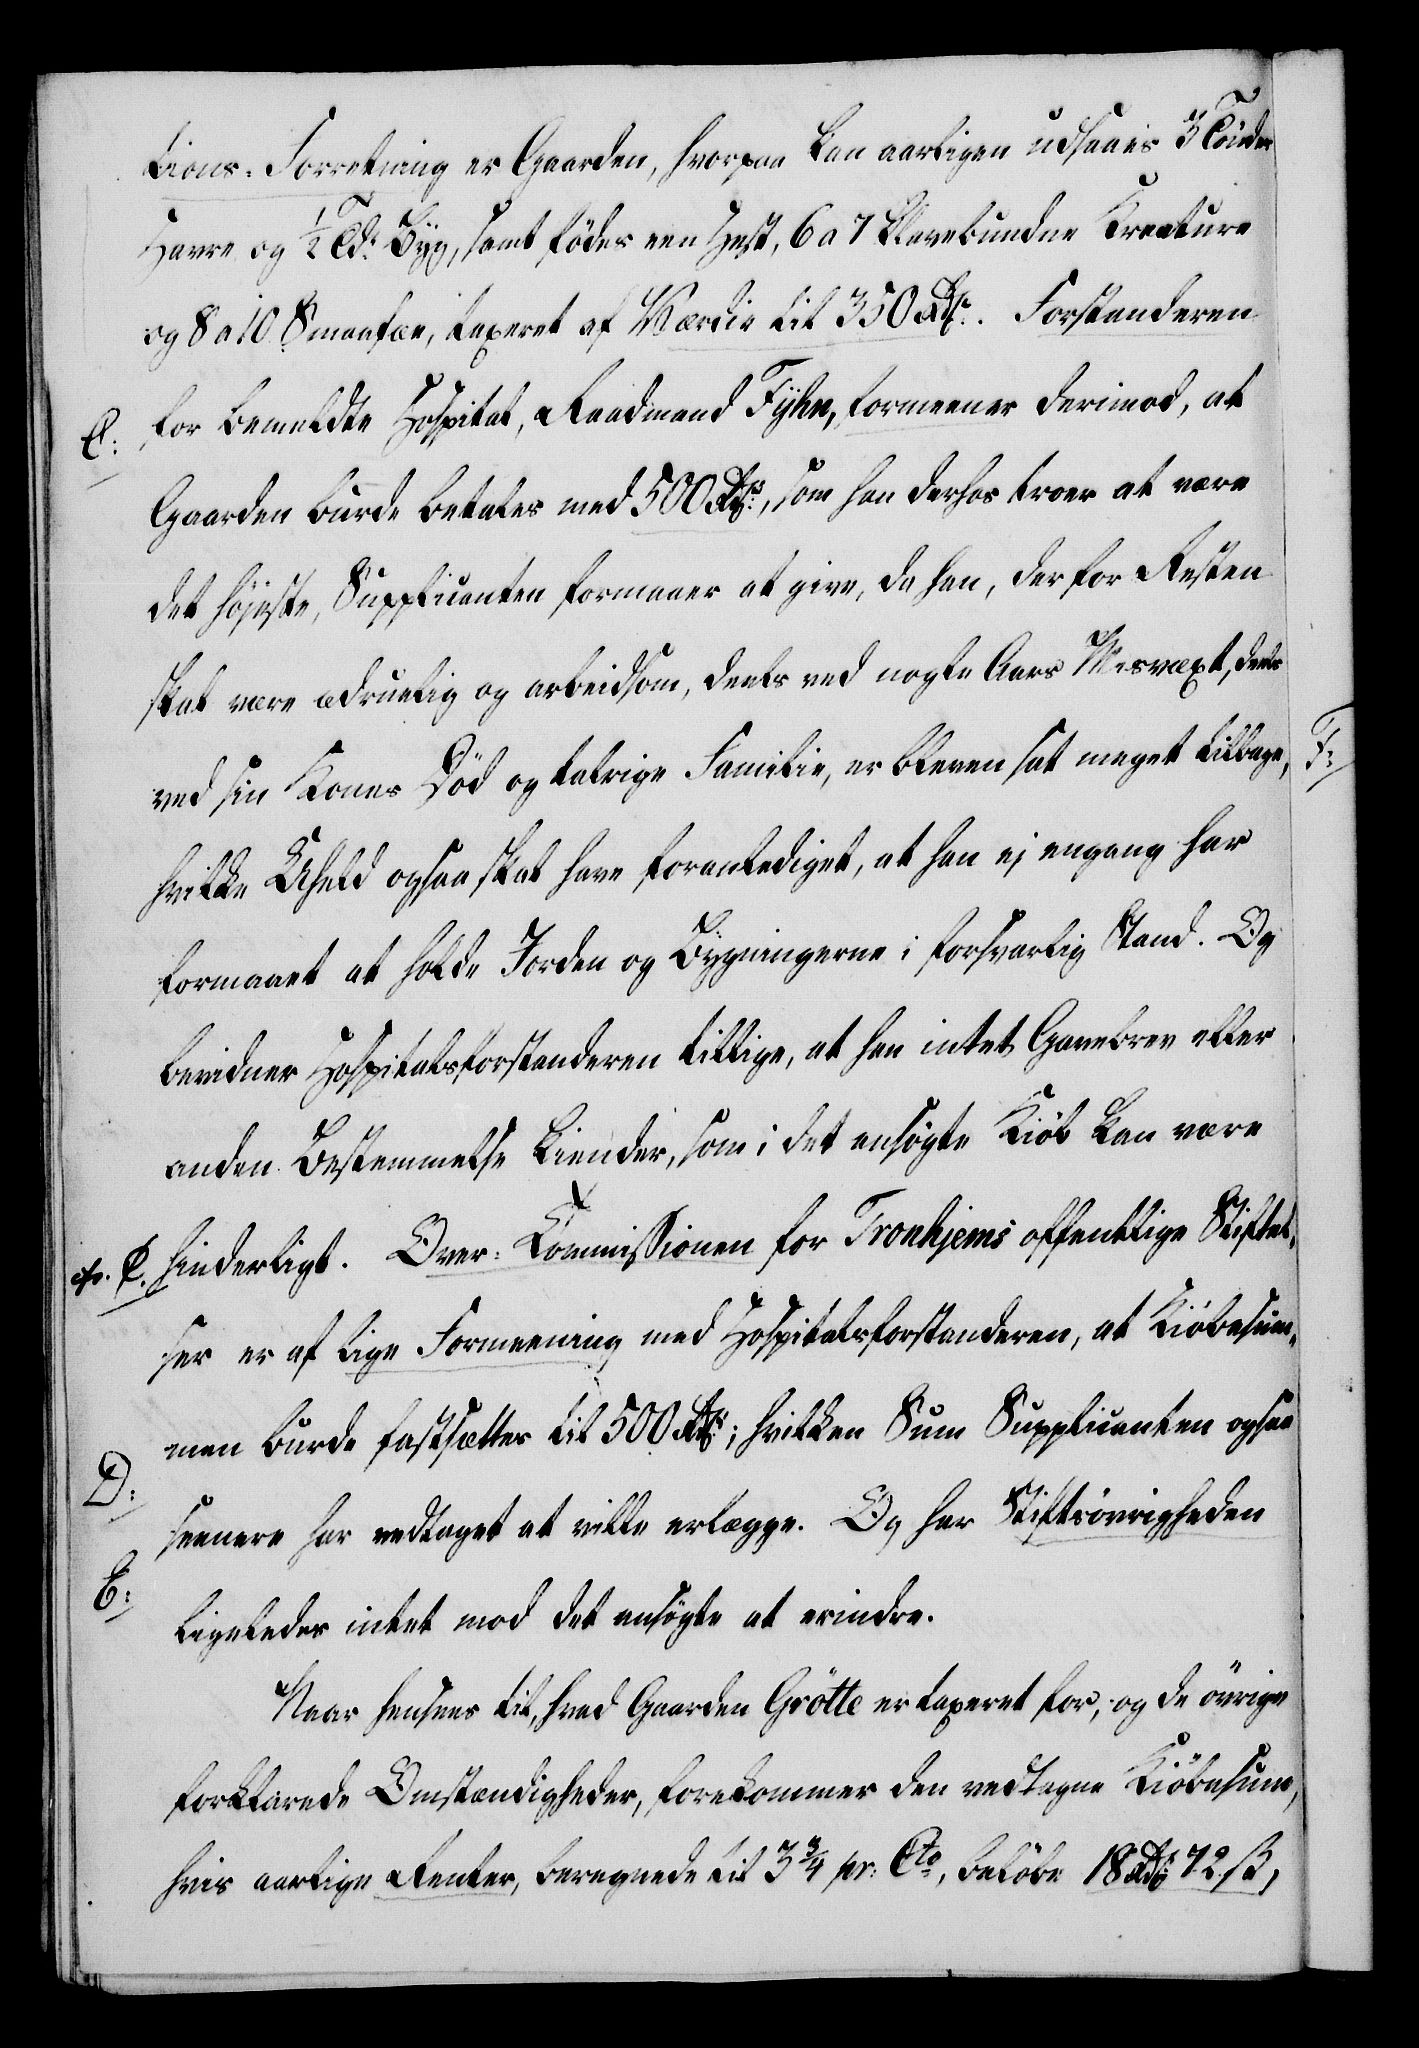 tions-Forretning er Gaarden, hvorpaa kan aarligen udsaaes 3 Tönder
Havre og ½ Td: Byg, samt födes een Hest, 6 a 7 klovebundne Kreature
og 8 a 10 Smaafæe, taxeret af Værdie til 350 Rdr. Forstanderen
C: for bemeldte Hospital, Raadmand Fÿhn, formeener derimod, at
Gaarden burde betales med 500 Rdr:, som han derhos troer at være
det höjeste, Supplicanten formaaer at give, da han, der for Resten
skal være ædruelig og arbeidsom, deels ved nogle Aars Misvæxt, deels
ved sin Kones Död og talrige Familie, er bleven sat meget tilbage,
F:
hvilke Uheld ogsaa skal have foranlediget, at han ej engang har
formaaet at holde Jorden og Bygningerne i forsvarlig Stand. Og
bevidner Hospitalsforstanderen tillige, at han intet Gavebrev eller
anden Bestemmelse kiender, som i det ansögte Kiöb kan være
cfr. C. hinderligt. Over-Commissionen for Tronhjems offentlige Stiftel-
ser er af lige Formeening med Hospitalsforstanderen, at Kiöbesum-
men burde fastsættes til 500 Rdr:; hvilken Sum Supplicanten ogsaa
D: seenere har vedtaget at ville erlægge. Og har Stiftsövrigheden
E: ligeledes intet mod det ansögte at erindre.
Naar hensees til, hvad Gaarden Grötte er taxeret for, og de övrige
forklarede Omstændigheder, forekommer den vedtagne Kiöbesum,
hvis aarlige Renter, beregnede til 3¾ pr: Cto, belöbe 18 Rdr: 72 ß,